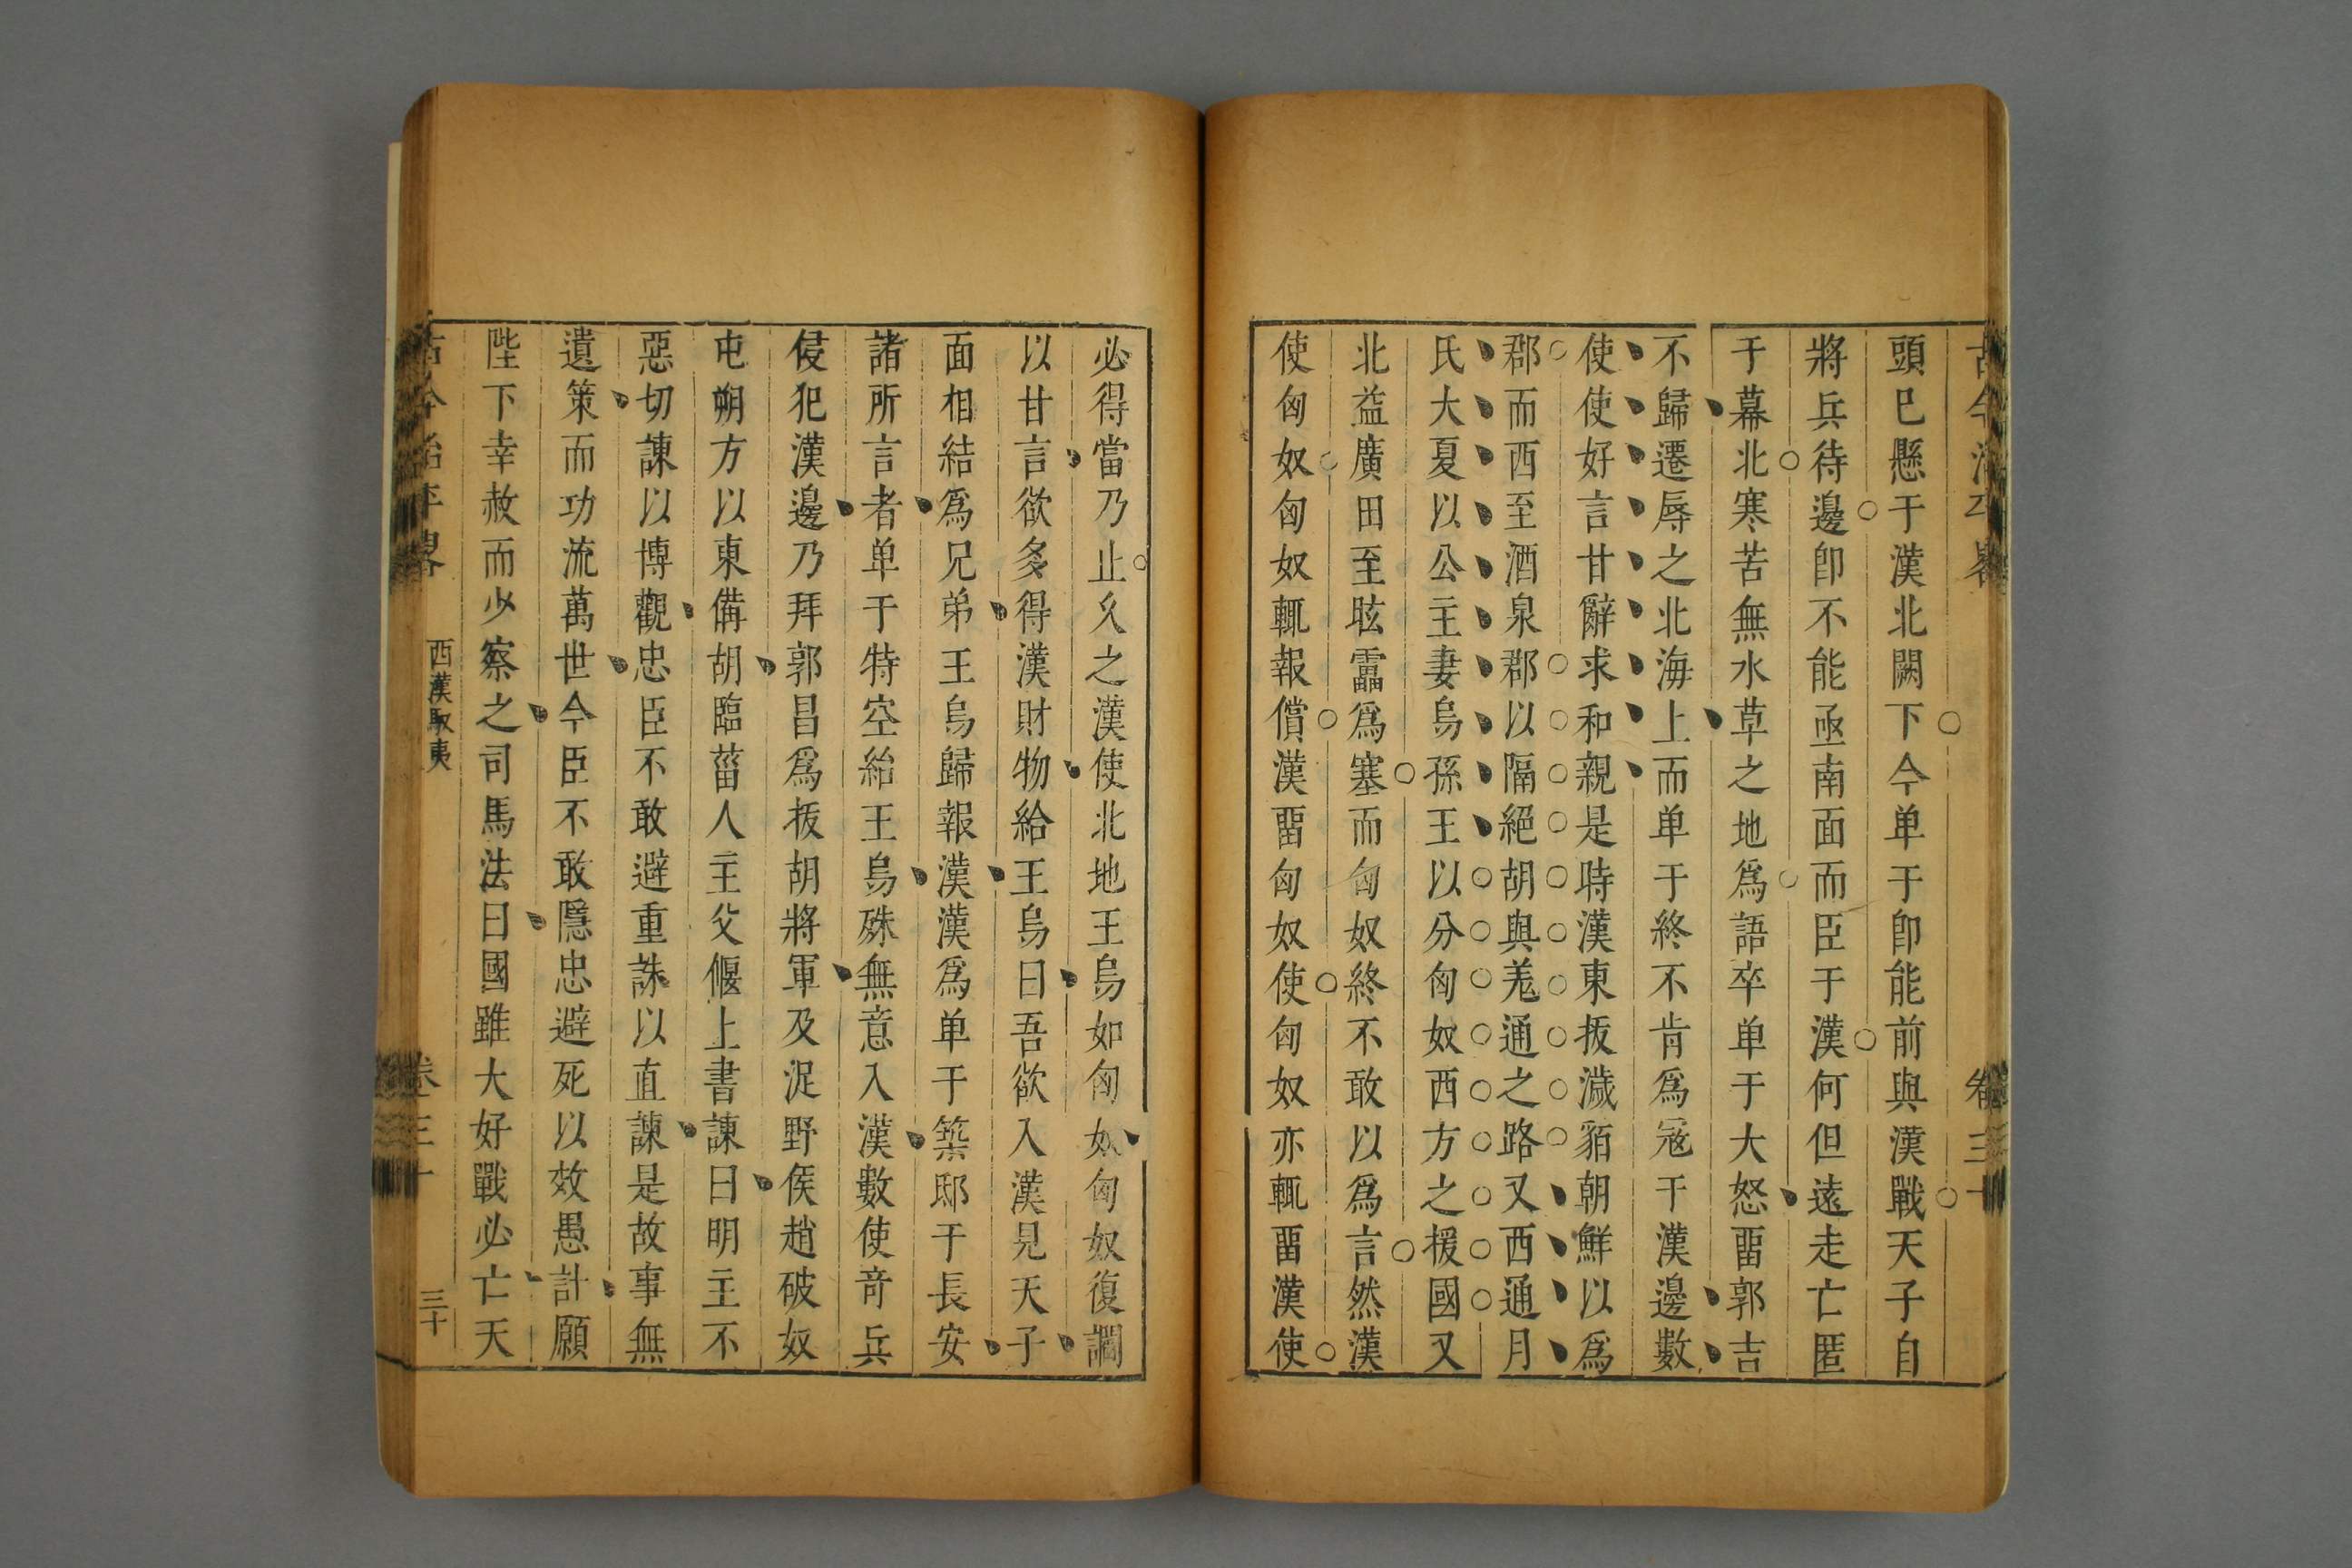 頭已懸于漢北闕下今单于卽能前與漢戰天子自
將兵待邊卽不能亟南面而臣于漢何但遠走亡匿
于幕北寒苦無水草之地爲語卒单于大怒畱郭吉
不歸遷辱之北海上而单于終不肯爲宼于漢邊數
使使好言甘辭求和親是時漢東拔濊貊朝鮮以爲
郡而西至酒泉郡以隔絕胡與羗通之路又西通月
氏大夏以公主妻烏孫王以分匈奴西方之援國又
北益廣田至眩雷爲塞而匈奴終不敢以爲言然漢
使匈奴匈奴輒報償漢畱匈奴使匈奴亦輒畱漢使
必得當乃止久之漢使北地王烏如匈奴匈奴復讇
以甘言欲多得漢財物給王烏曰吾欲入漢見天子
面相結爲兄弟王烏歸報漢漢爲单于築邸于長安
諸所言者单于特空紿王烏殊無意入漢數使竒兵
侵犯漢邊乃拜郭昌爲拔胡將軍及浞野侯趙破奴
屯朔方以東備胡臨菑人主父偃上書諫曰明主不
惡切諫以博觀忠臣不敢避重誅以直諫是故事無
遺策而功流萬世今臣不敢隱忠避死以效愚計願
陛下幸赦而少察之司馬法曰國雖大好戰必亡天
西漢馭夷
卷三十
三十